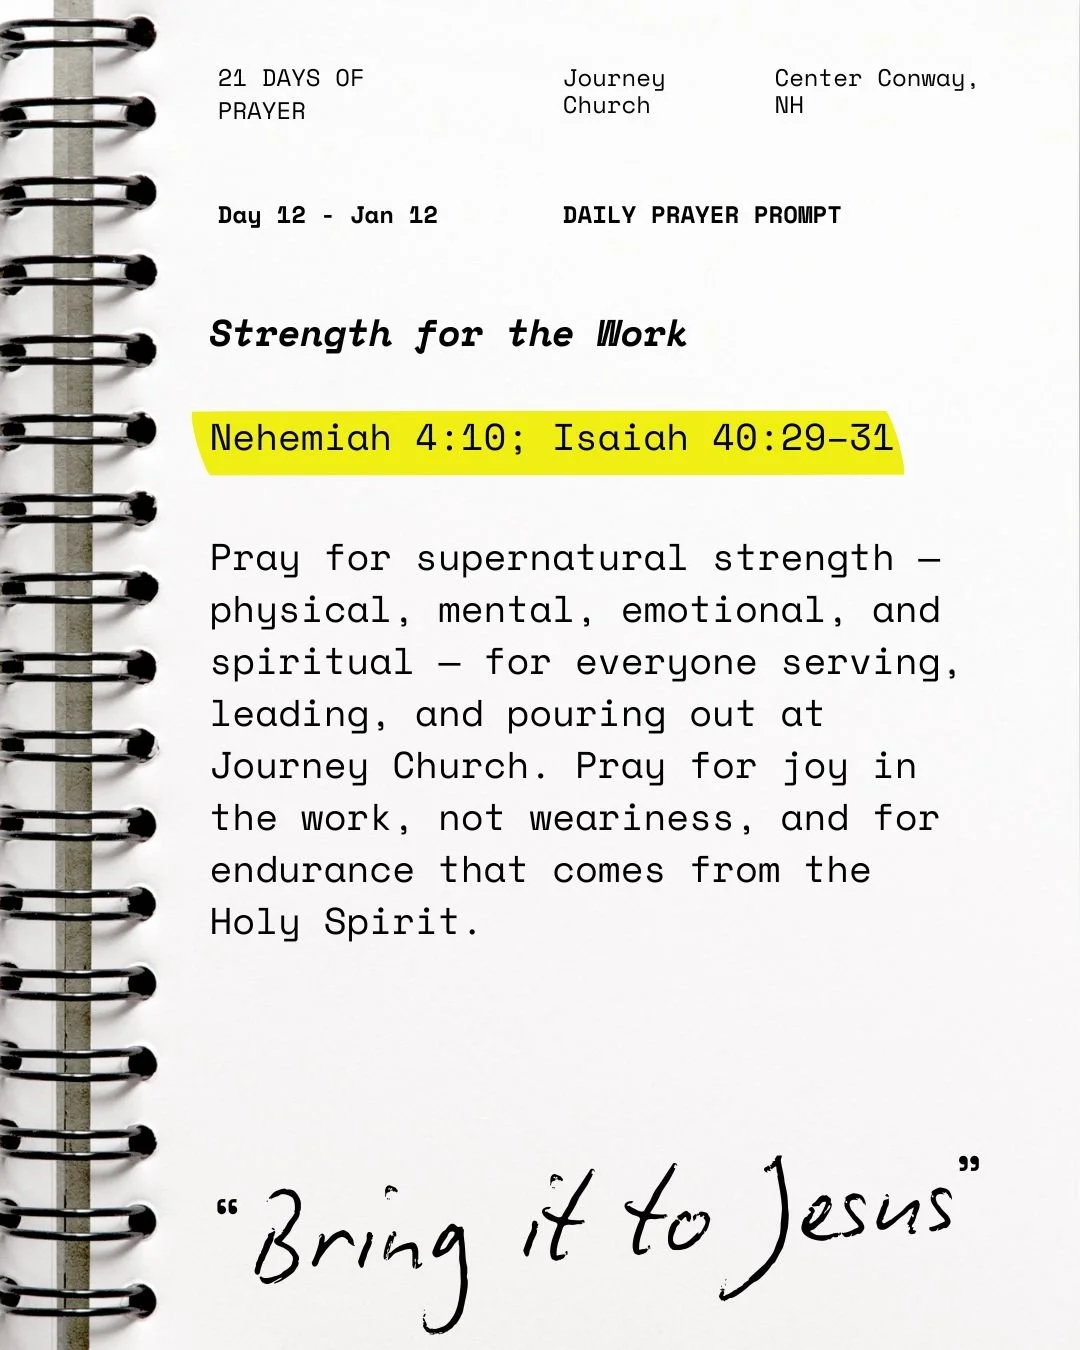 21 DAYS OF
PRAYER
Journey
Church
Center Conway,
NH
Day 12 - Jan 12
DAILY PRAYER PROMPT
Strength for the Work
Nehemiah 4:10; Isaiah 40:29–31
Pray for supernatural strength —
physical, mental, emotional, and
spiritual — for everyone serving,
leading, and pouring out at
Journey Church. Pray for joy in
the work, not weariness, and for
endurance that comes from the
Holy Spirit.
“Bring it to Jesus”